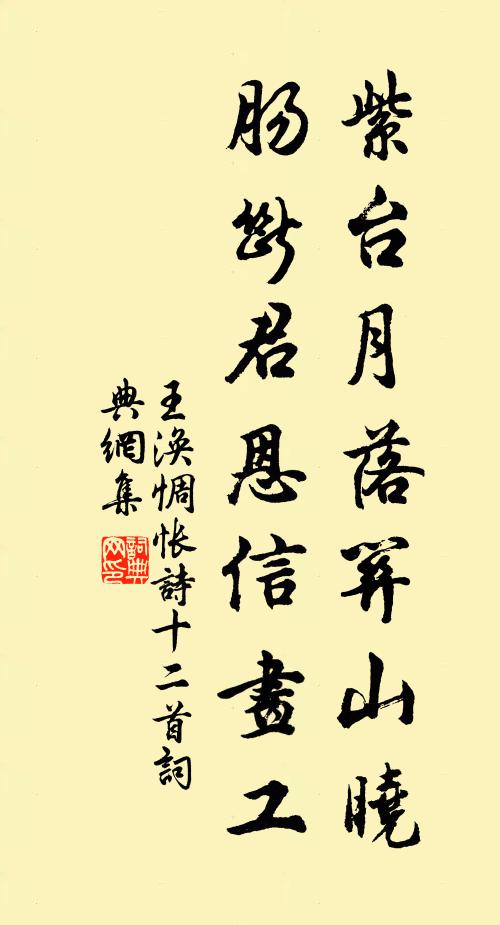 紫台月落關山曉
腸斷君恩信畫工
王渙惆悵詩十二首詞
典網集
詞典
网印